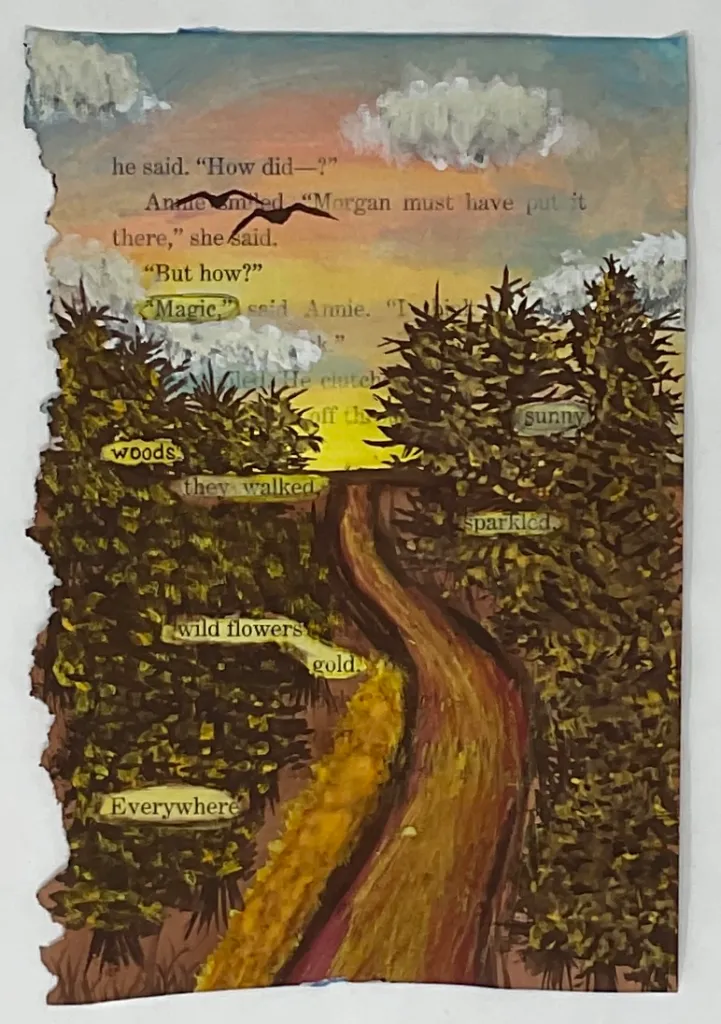 he said. “How did—?”
Annie smiled. “Morgan must have put it
there,” she said.
“But how?”
“Magic,” said Annie. “I
k.”
led. He clutch
off th
sunny
woods.
they walked
sparkled.
wild flowers
gold.
Everywhere